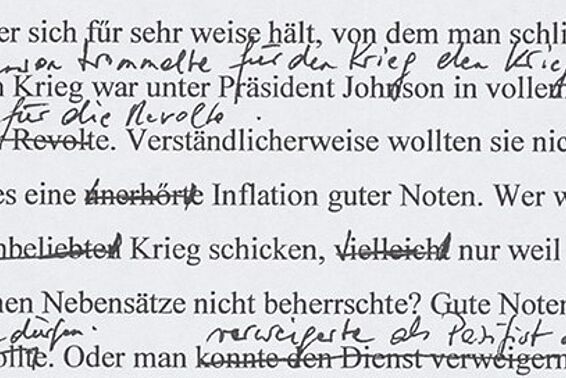 er sich für sehr weise hält, von dem man schli
trommelte für den Krieg den Krieg
n Krieg war unter Präsident Johnson in vollem
für die Revolte.
Revolte. Verständlicherweise wollten sie nic
es eine unerhörte Inflation guter Noten. Wer w
nbeliebten Krieg schicken, vielleicht nur weil
nen Nebensätze nicht beherrschte? Gute Noten
dürfen. verweigerte als Pazifist
ollte. Oder man konnte den Dienst verweigern